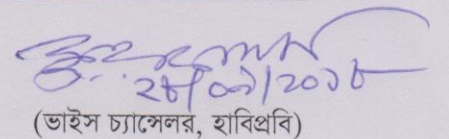 ২৮/০৯/২০১৮
(ভাইস চ্যান্সেলর, হাবিপ্রবি)